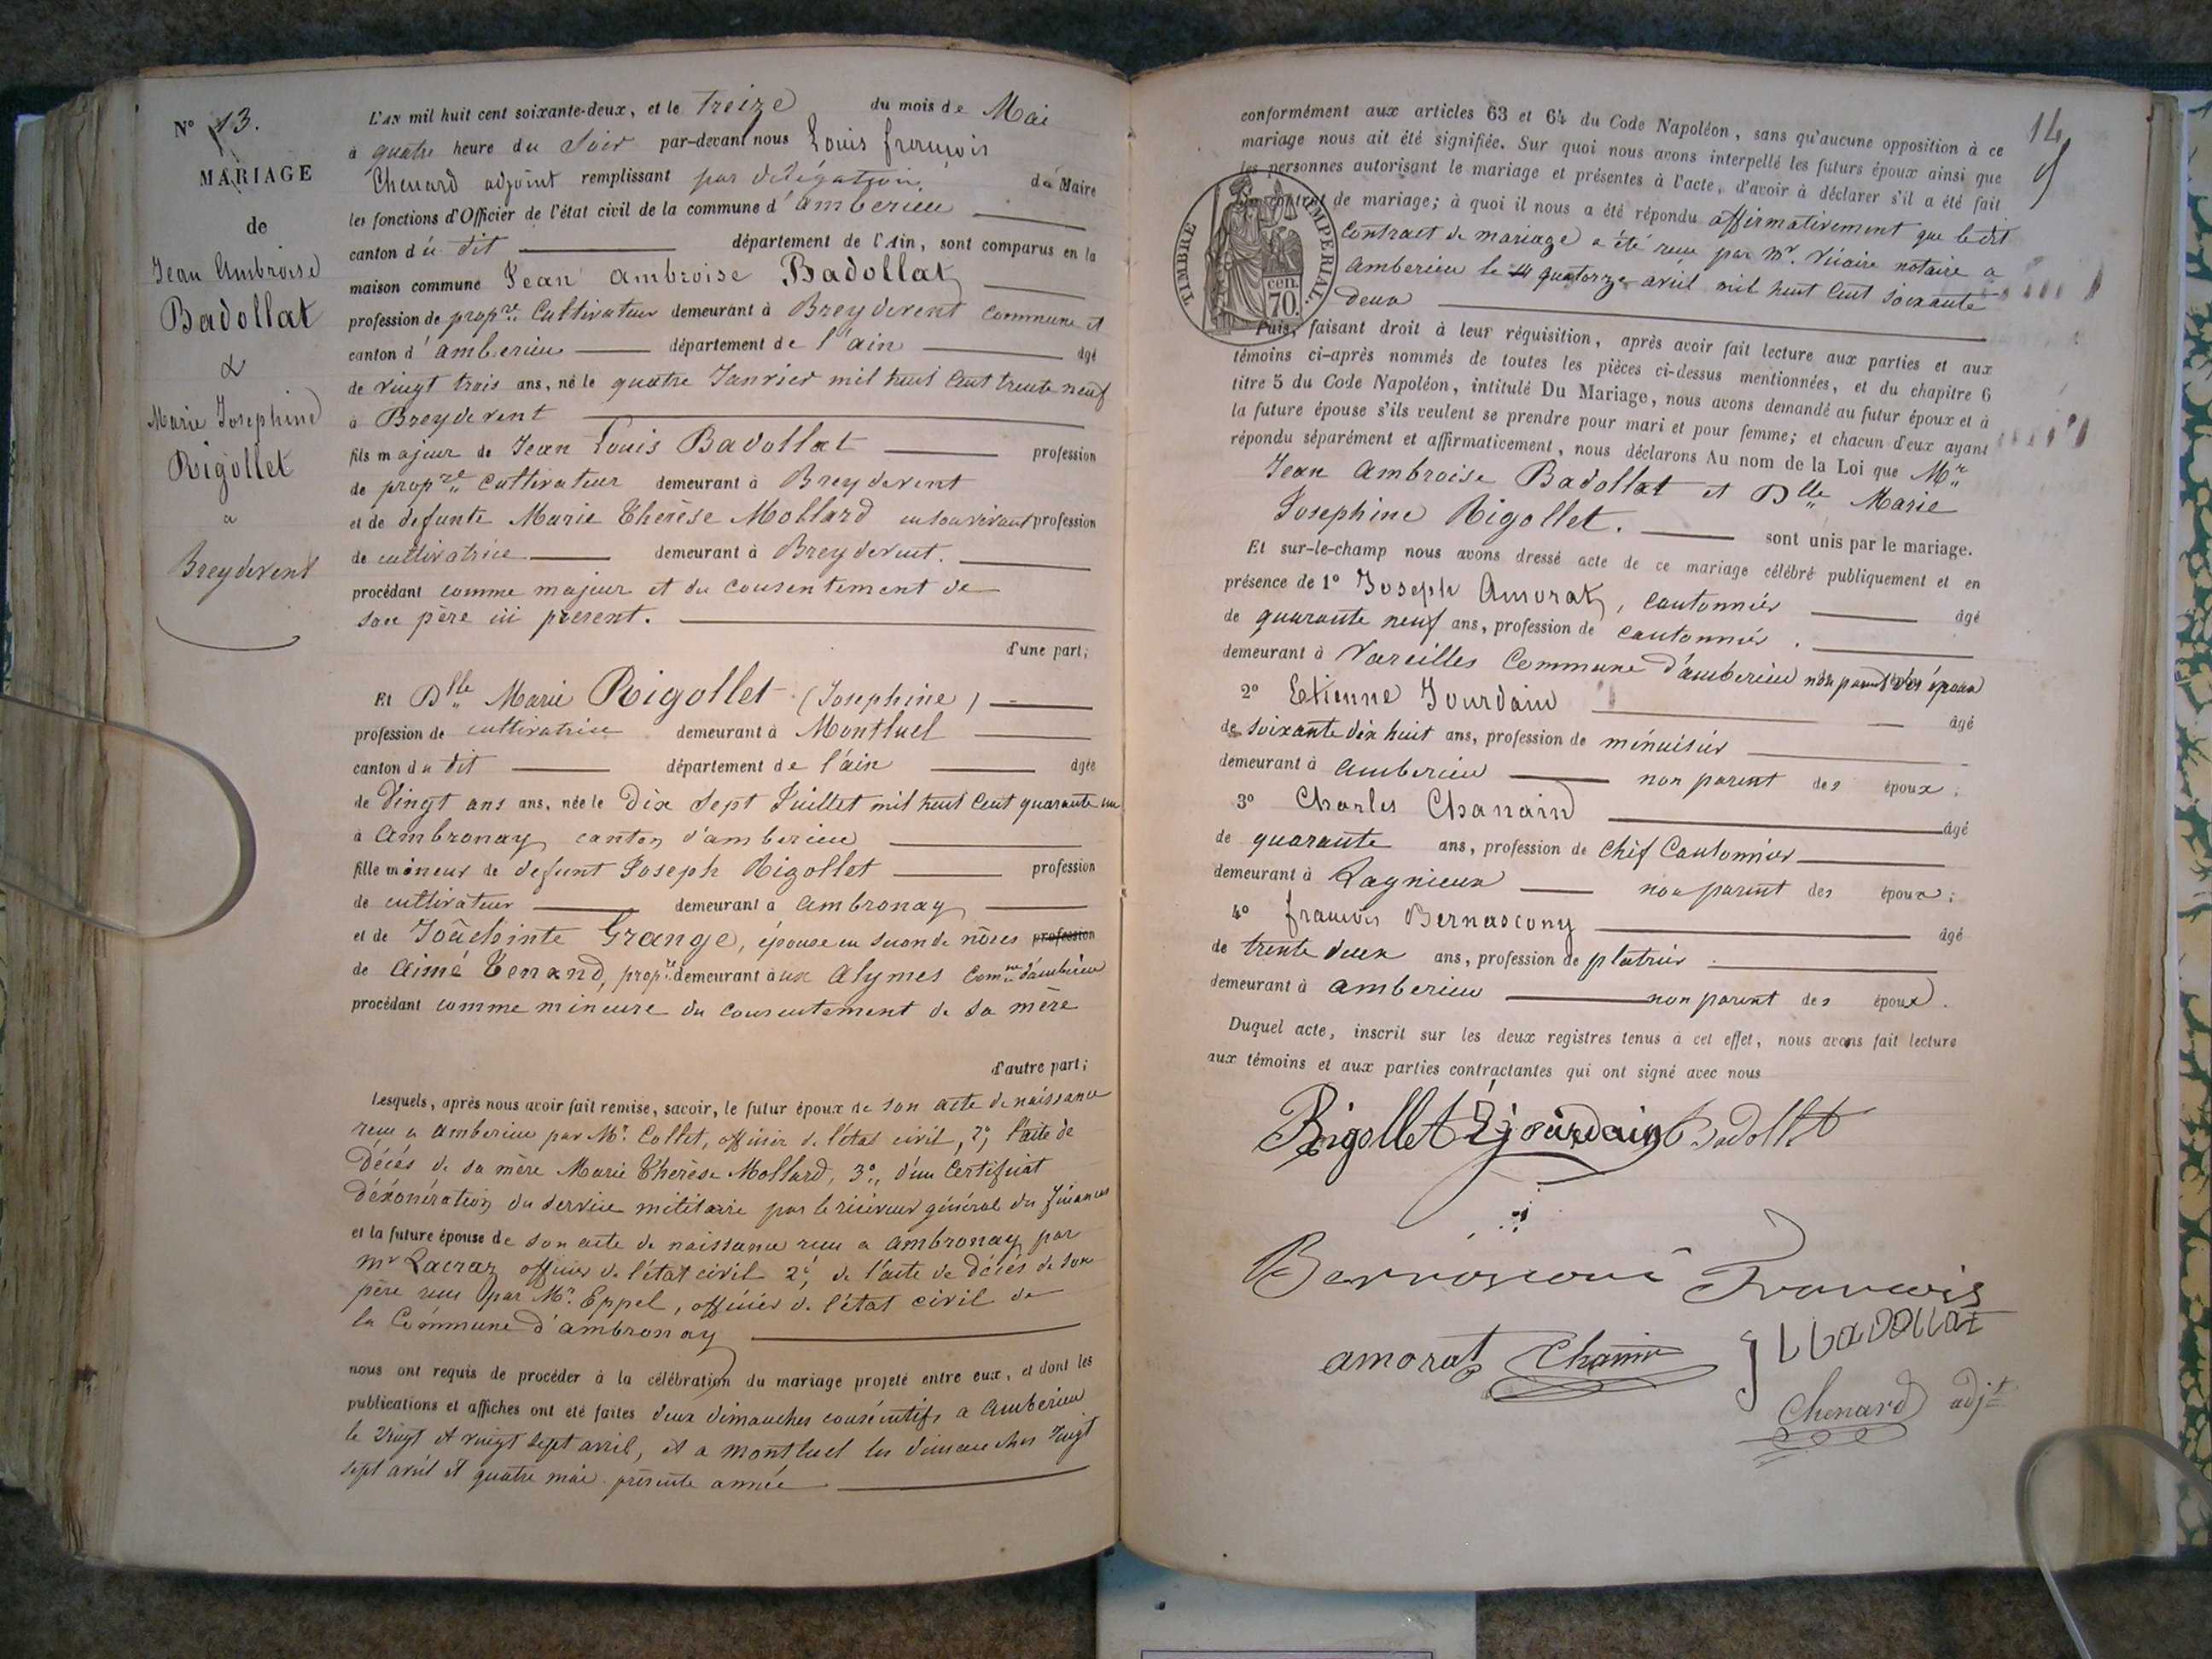 N° 13.
MARIAGE
de
Jean Ambroise
Badollat
&
Marie Josephine
Rigollet
a
Breydevent
L'AN mil huit cent soixante-deux, et le treize du mois de Mai
à quatre heure du Soir par-devant nous Louis françois
Chenard adjoint remplissant par délégation du Maire
les fonctions d'Officier de l'état civil de la commune d'amberieu
canton du dit département de l'Ain, sont comparus en la
maison commune Jean ambroise Badollat
profession de propre. Cultivateur demeurant à Breydevent commune et
canton d'amberieu département de l'ain âgé
de vingt trois ans, né le quatre Janvier mil huit cent trente neuf
à Breydevent
fils majeur de Jean Louis Badollat profession
de propre Cultivateur demeurant à Breydevent
et de defunte Marie Thérèse Mollard en son vivant profession
de cultivatrice demeurant à Breydevent.
procédant comme majeur et du consentement de
son père ici present.
d'une part;
Et Dlle Marie Rigollet (Josephine)
profession de cultivatrice demeurant à Montluel
canton du dit département de l'ain âgée
de Vingt ans ans, née le Dix Sept Juillet mil huit Cent quarante un
à ambronay canton d'amberieu
fille mineur de defunt Joseph Rigollet profession
de cultivateur demeurant à ambronay
et de Joâchinte Grange, épouse en seconde nôces profession
de aimé Tenand, propre demeurant àux alymes Comne d'ambérieu
procédant comme mineure du consentement de sa mère
d'autre part;
Lesquels, après nous avoir fait remise, savoir, le futur époux de son acte de naissance
recu a amberieu par Mr. Collet, officier de l'état civil, 2°, l'acte de
Décès de sa mère Marie Thérèse Mollard, 3°,, d'un Certificat
d'éxonération du service militaire par le receveur général des finances
et la future épouse de son acte de naissance recu a ambronay par
mr Lacraz officier de l'état civil 2°, de l'acte de décès de son
père recu par Mr. Eppel, officier de l'état civil de
la Commune d'ambronay
nous ont requis de procéder à la célébration du mariage projeté entre eux, et dont les
publications et affiches ont été faites deux dimanches consécutifs a amberieu
le vingt et vingt sept avril, et a montluel les dimanches vingt
sept avril et quatre mai présente année
14
conformément aux articles 63 et 64 du Code Napoléon, sans qu'aucune opposition à ce
mariage nous ait été signifiée. Sur quoi nous avons interpellé les futurs époux ainsi que
les personnes autorisant le mariage et présentes à l'acte, d'avoir à déclarer s'il a été fait
un contrat de mariage; à quoi il nous a été répondu affirmativement que ledit
TIMBRE IMPERIAL.
cen.
70.
Contract de mariage a été recu par mr. Vicaire notaire a
amberieu le quatorze avril mil huit cent soixante
deux
Puis, faisant droit à leur réquisition, après avoir fait lecture aux parties et aux
témoins ci-après nommés de toutes les pièces ci-dessus mentionnées, et du chapitre 6
titre 5 du Code Napoléon, intitulé Du Mariage, nous avons demandé au futur époux et à
la future épouse s'ils veulent se prendre pour mari et pour femme; et chacun d'eux ayant
répondu séparément et affirmativement, nous déclarons Au nom de la Loi que Mr
Jean ambroise Badollat et Dlle Marie
Josephine Rigollet. sont unis par le mariage.
Et sur-le-champ nous avons dressé acte de ce mariage célébré publiquement et en
présence de 1° Joseph Amorat, cantonnier âgé
de quarante neuf ans, profession de cantonnier.
demeurant à Vareilles Commune d'amberieu non parent des époux
2° Etienne Jourdain âgé
de soixante dix huit ans, profession de ménuisier
demeurant à amberieu non parent des époux;
3° Charles Chanain âgé
de quarante ans, profession de Chef Cantonnier
demeurant à Lagnieux non parent des époux;
4° françois Bernascony âgé
de trente deux ans, profession de platrier.
demeurant à amberieu non parent des époux.
Duquel acte, inscrit sur les deux registres tenus à cet effet, nous avons fait lecture
aux témoins et aux parties contractantes qui ont signé avec nous
Rigollet E jourdain Badollat
Bernasconi François
amorat Chanin J L badollat
Chenard adjt